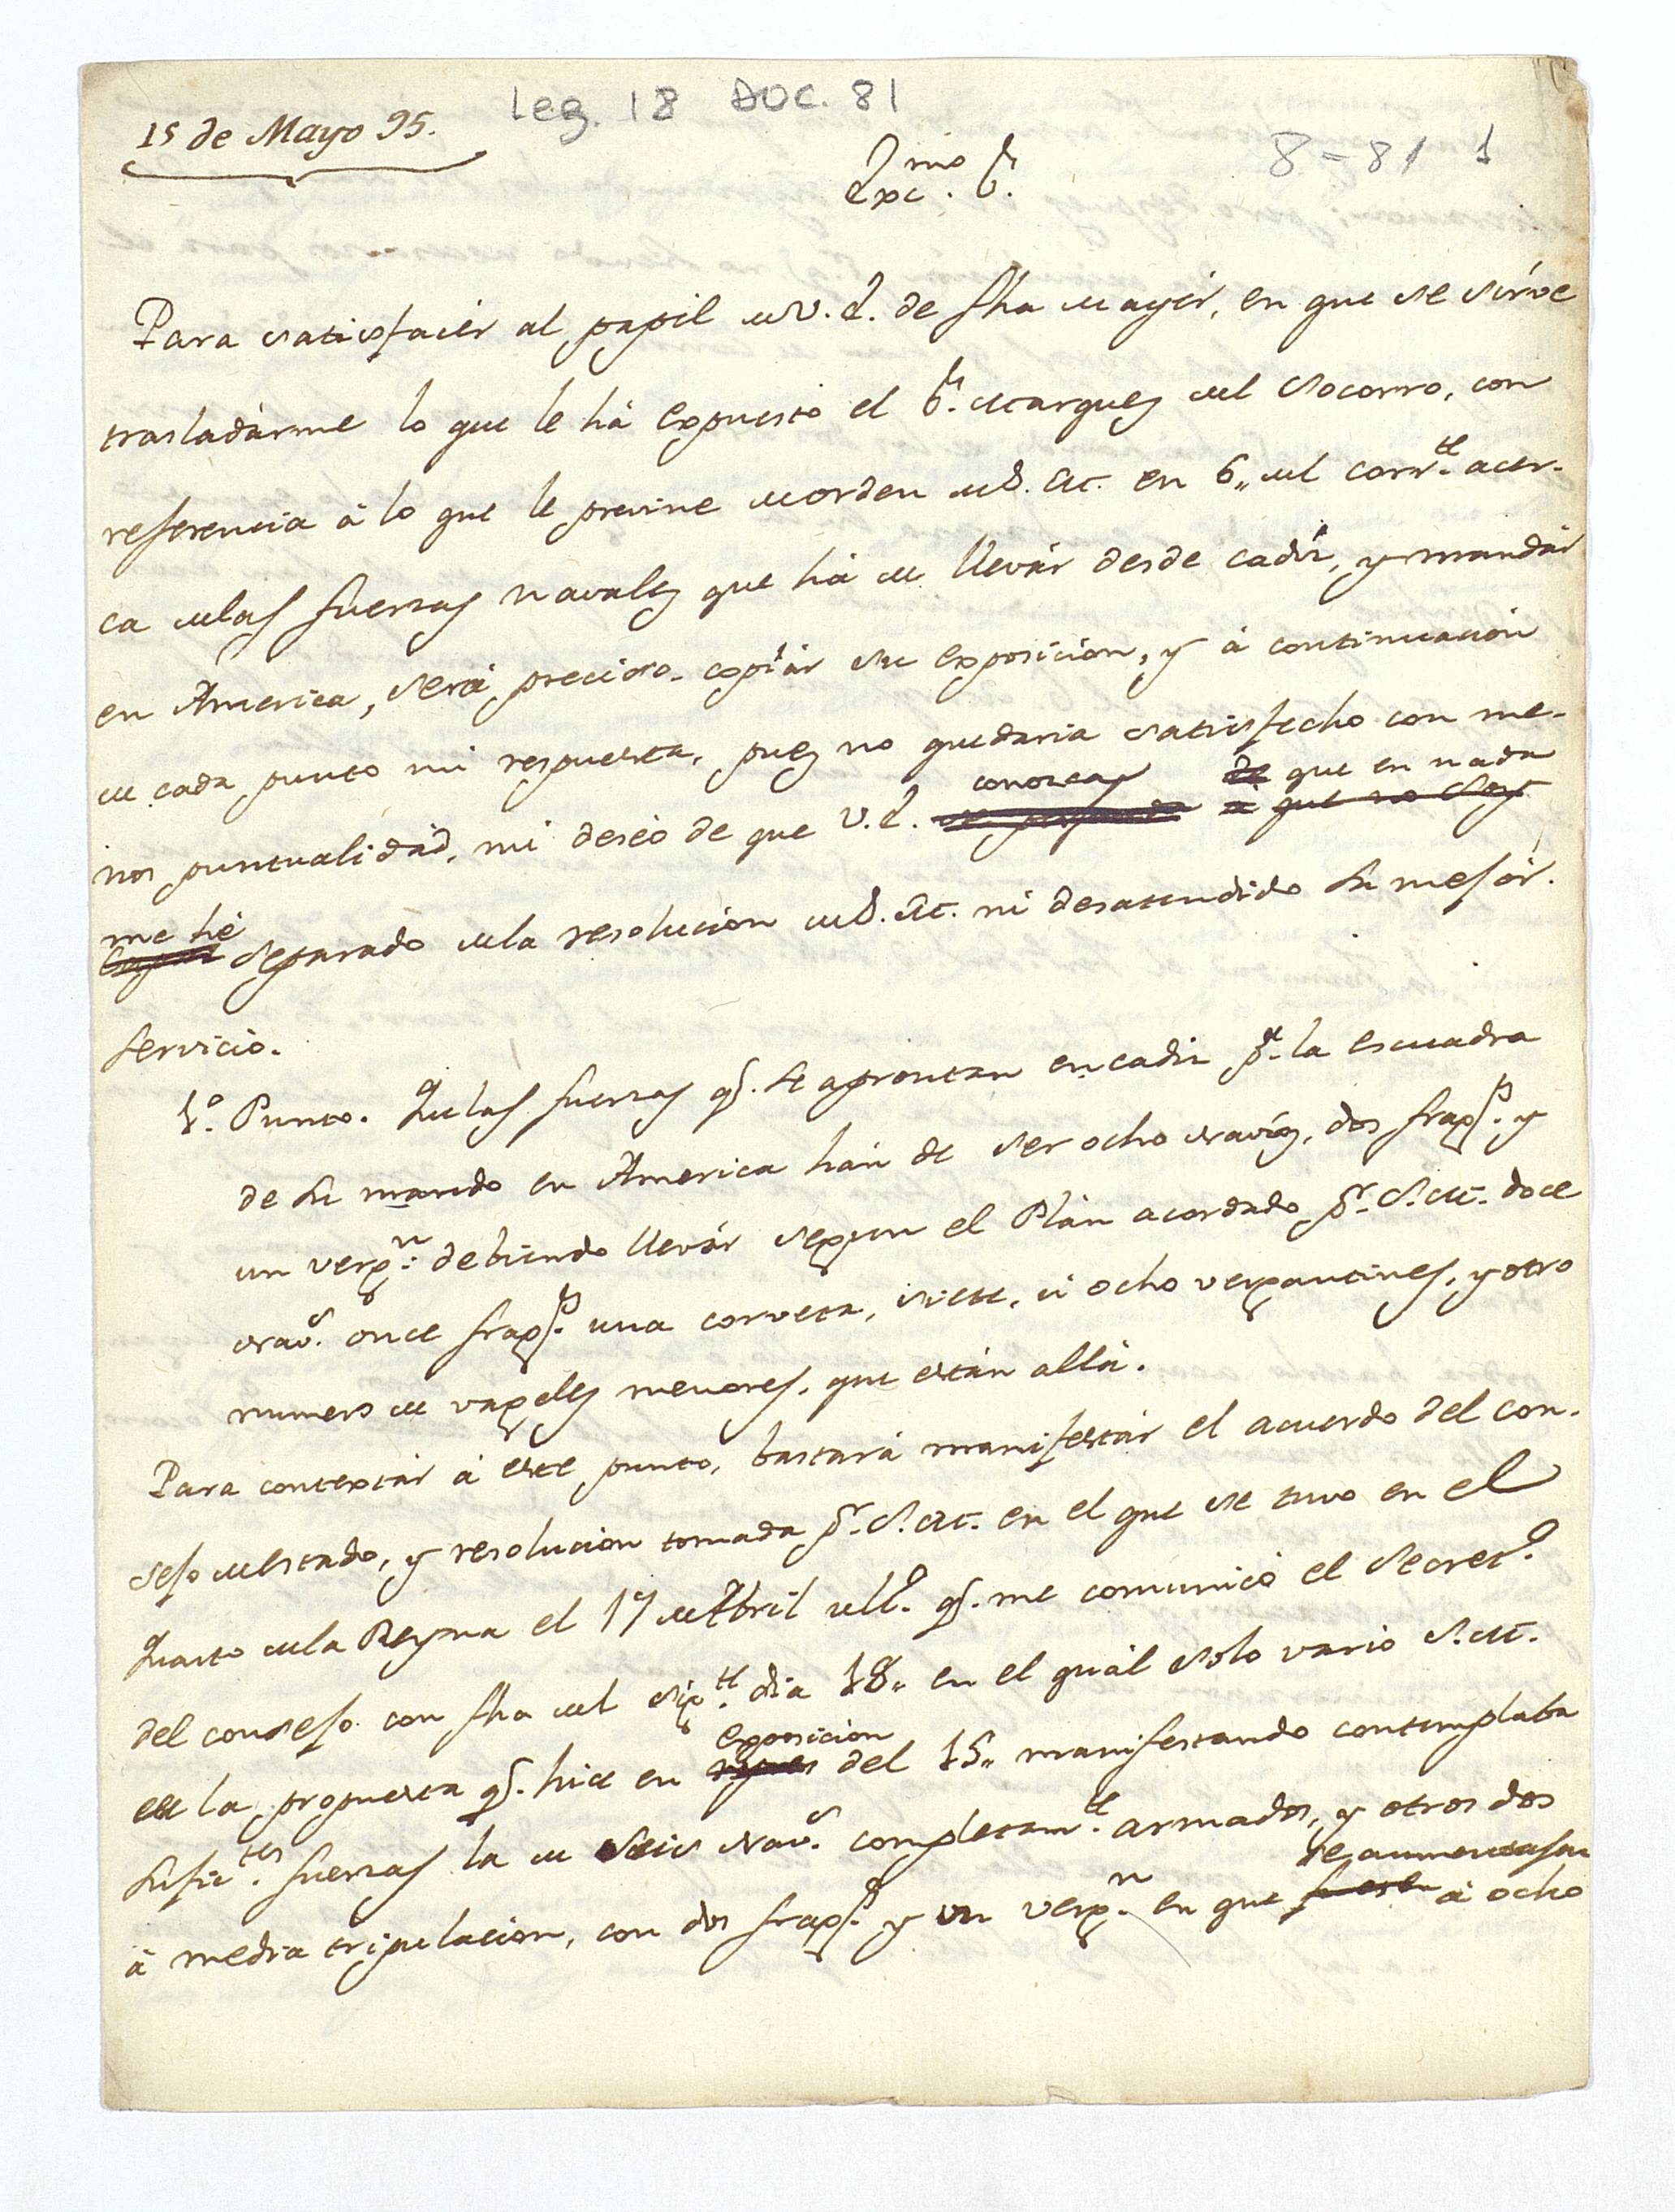 Leg. 18 DOC. 81
15 de Mayo 95.
8=81 1
Exc.mo S.r
Para satisfacér al papél de V.E. de fha de ayér, en que se sírve
trasladárme lo que le há expuesto el S.r Marques del Socorro, con
referencia á lo que le previne de orden de S.M. en 6,, del corr.te acer-
ca de las fuerzas navales que há de llevár desde cadíz, y mandár
en America, será preciso copiár su exposicion, y á continuacion
de cada punto mi respuesta, pues no quedaria satisfecho con me-
conozca de que en nada
nos puntualidád, mi deséo de que V.E. se persuada á que no soy
me hé
capaz separado de la resolucion de S.M. ni desatendido su mejór
servicio.
1.o Punto. Que las fuerzas q.e se aprontan en cadiz p.a la escuadra
de su mando en America hán de ser ocho navíos, dos frag.s y
un verg.n debiendo llevár segun el Plán acordado p.r S.M. doce
nav.s once frag.s una corveta, siete, ú ocho vergantines, y otro
numero de vageles menores, que están allá.
Para contextár á este punto, bastará manifestár el acuerdo del con-
sejo de estado, y resolucion tomada p.r S.M. en el que se tuvo en el
Quarto de la Reyna el 17 de Abril ult.o q.e me comunicó el Secret.o
del consejo con fha del sig.te dia 18,, en el quál solo vario S.M.
exposicion
de la propuesta q.e hice en del 15,, manifestando contemplaba
sufic.tes fuerzas la de seis nav.s completam.te armados, y otros dos
se aumentasen
á media tripulacion, con dos frag.s y un verg.n en que fuesen á ocho